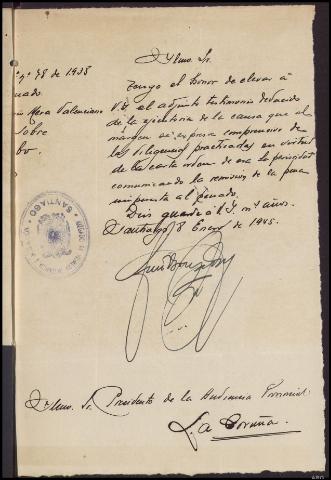 nº 78 de 1938
Mera Valenciano
Sobre
bo.
Ylmo. Sr.
Tengo el honor de elevar á
V.I. el adjunto testimonio deducido
de la ejecutoria de la causa que al
margen se expresa comprensivo de
las diligencias practicadas en virtud
de la carta orden de esa Superioridad
comunicando la remisión de la pena
impuesta al penado.
Dios guarde á V.I. ms años.
Santiago 8 Enero de 1945.
SANTIAGO
Ylmo. Sr. Presidente de la Audiencia Provincial
La Coruña